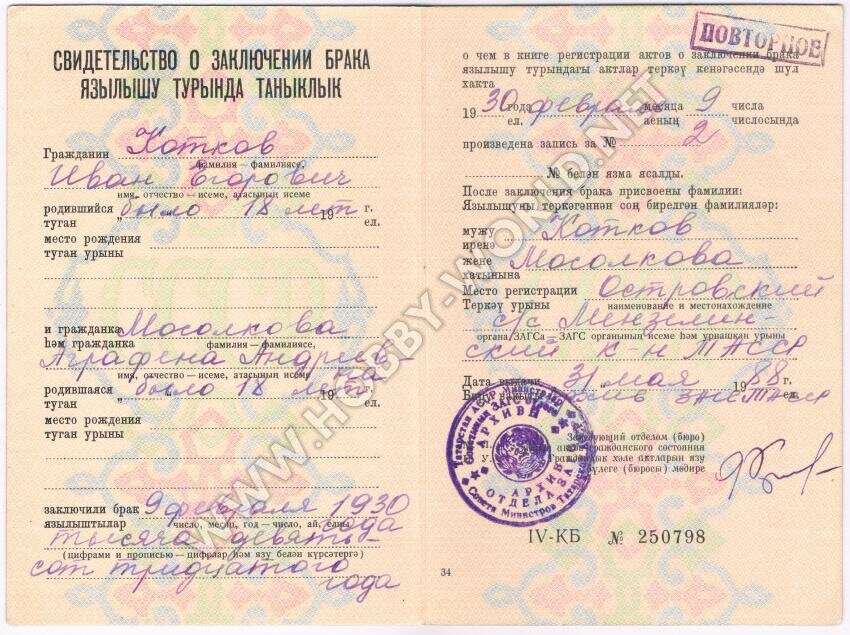 СВИДЕТЕЛЬСТВО О ЗАКЛЮЧЕНИИ БРАКА
ЯЗЫЛЫШУ ТУРЫНДА ТАНЫКЛЫК
Гражданин Котков
фамилия — фамилиясе,
Иван Егорович
имя, отчество — исеме, атасының исеме
родившийся „было 18 лет 19 г.
туган „ ел.
место рождения
туган урыны
и гражданка Мосолкова
һәм гражданка фамилия — фамилиясе,
Аграфена Андрив-
имя, отчество — исеме, атасының исеме
родившаяся „было 18 лет 19 г.
туган „ ел.
место рождения
туган урыны
заключили брак 9 февраля 1930
язылыштылар число, месяц, год — число, ай, елны
года
тысяча девять-
(цифрами и прописью — цифрлар һәм язу белән күрсәтергә)
сот тридцатого
года
ПОВТОРНОЕ
о чем в книге регистрации актов о заключении брака
язылышу турындагы актлар теркәү кенәгәсендә шул
хакта
19 30 года февраля месяца 9 числа
ел, аеның числосында
произведена запись за № 2
№ белән язма ясалды.
После заключения брака присвоены фамилии:
Язылышуны теркәгәннән соң бирелгән фамилияләр:
мужу Котков
иренә
жене Мосолкова
хатынына
Место регистрации Островский
Теркәү урыны наименование и местонахождение
с/с Мензелин-
органа/ЗАГСа — ЗАГС органының исеме һәм урнашкан урыны
ский р-н ТАССР
Дата выдачи 31 мая 1988 г.
Бирү вакыты ел.
Заведующий отделом (бюро)
записи актов гражданского состояния
Гражданлык хәле актларын язу
бүлеге (бюросы) мөдире
АРХИВЫ
АРХИВ
ОТДЕЛА ЗАГС
Совета Министров Татарской
IV-КБ № 250798
34
WWW.HOBBY-WORLD.NET